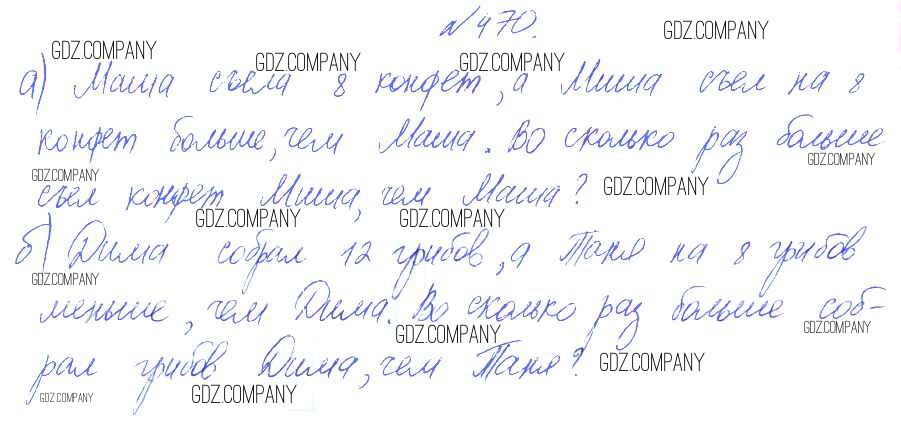 № 470.
GDZ.COMPANY GDZ.COMPANY
GDZ.COMPANY GDZ.COMPANY
а) Маша съела 8 конфет, а Миша съел на 8
конфет больше, чем Маша. Во сколько раз больше
GDZ.COMPANY GDZ.COMPANY
съел конфет Миша, чем Маша? GDZ.COMPANY
GDZ.COMPANY GDZ.COMPANY
б) Дима собрал 12 грибов, а Таня на 8 грибов
GDZ.COMPANY
меньше, чем Дима. Во сколько раз больше соб-
GDZ.COMPANY GDZ.COMPANY
рал грибов Дима, чем Таня? GDZ.COMPANY
GDZ.COMPANY GDZ.COMPANY